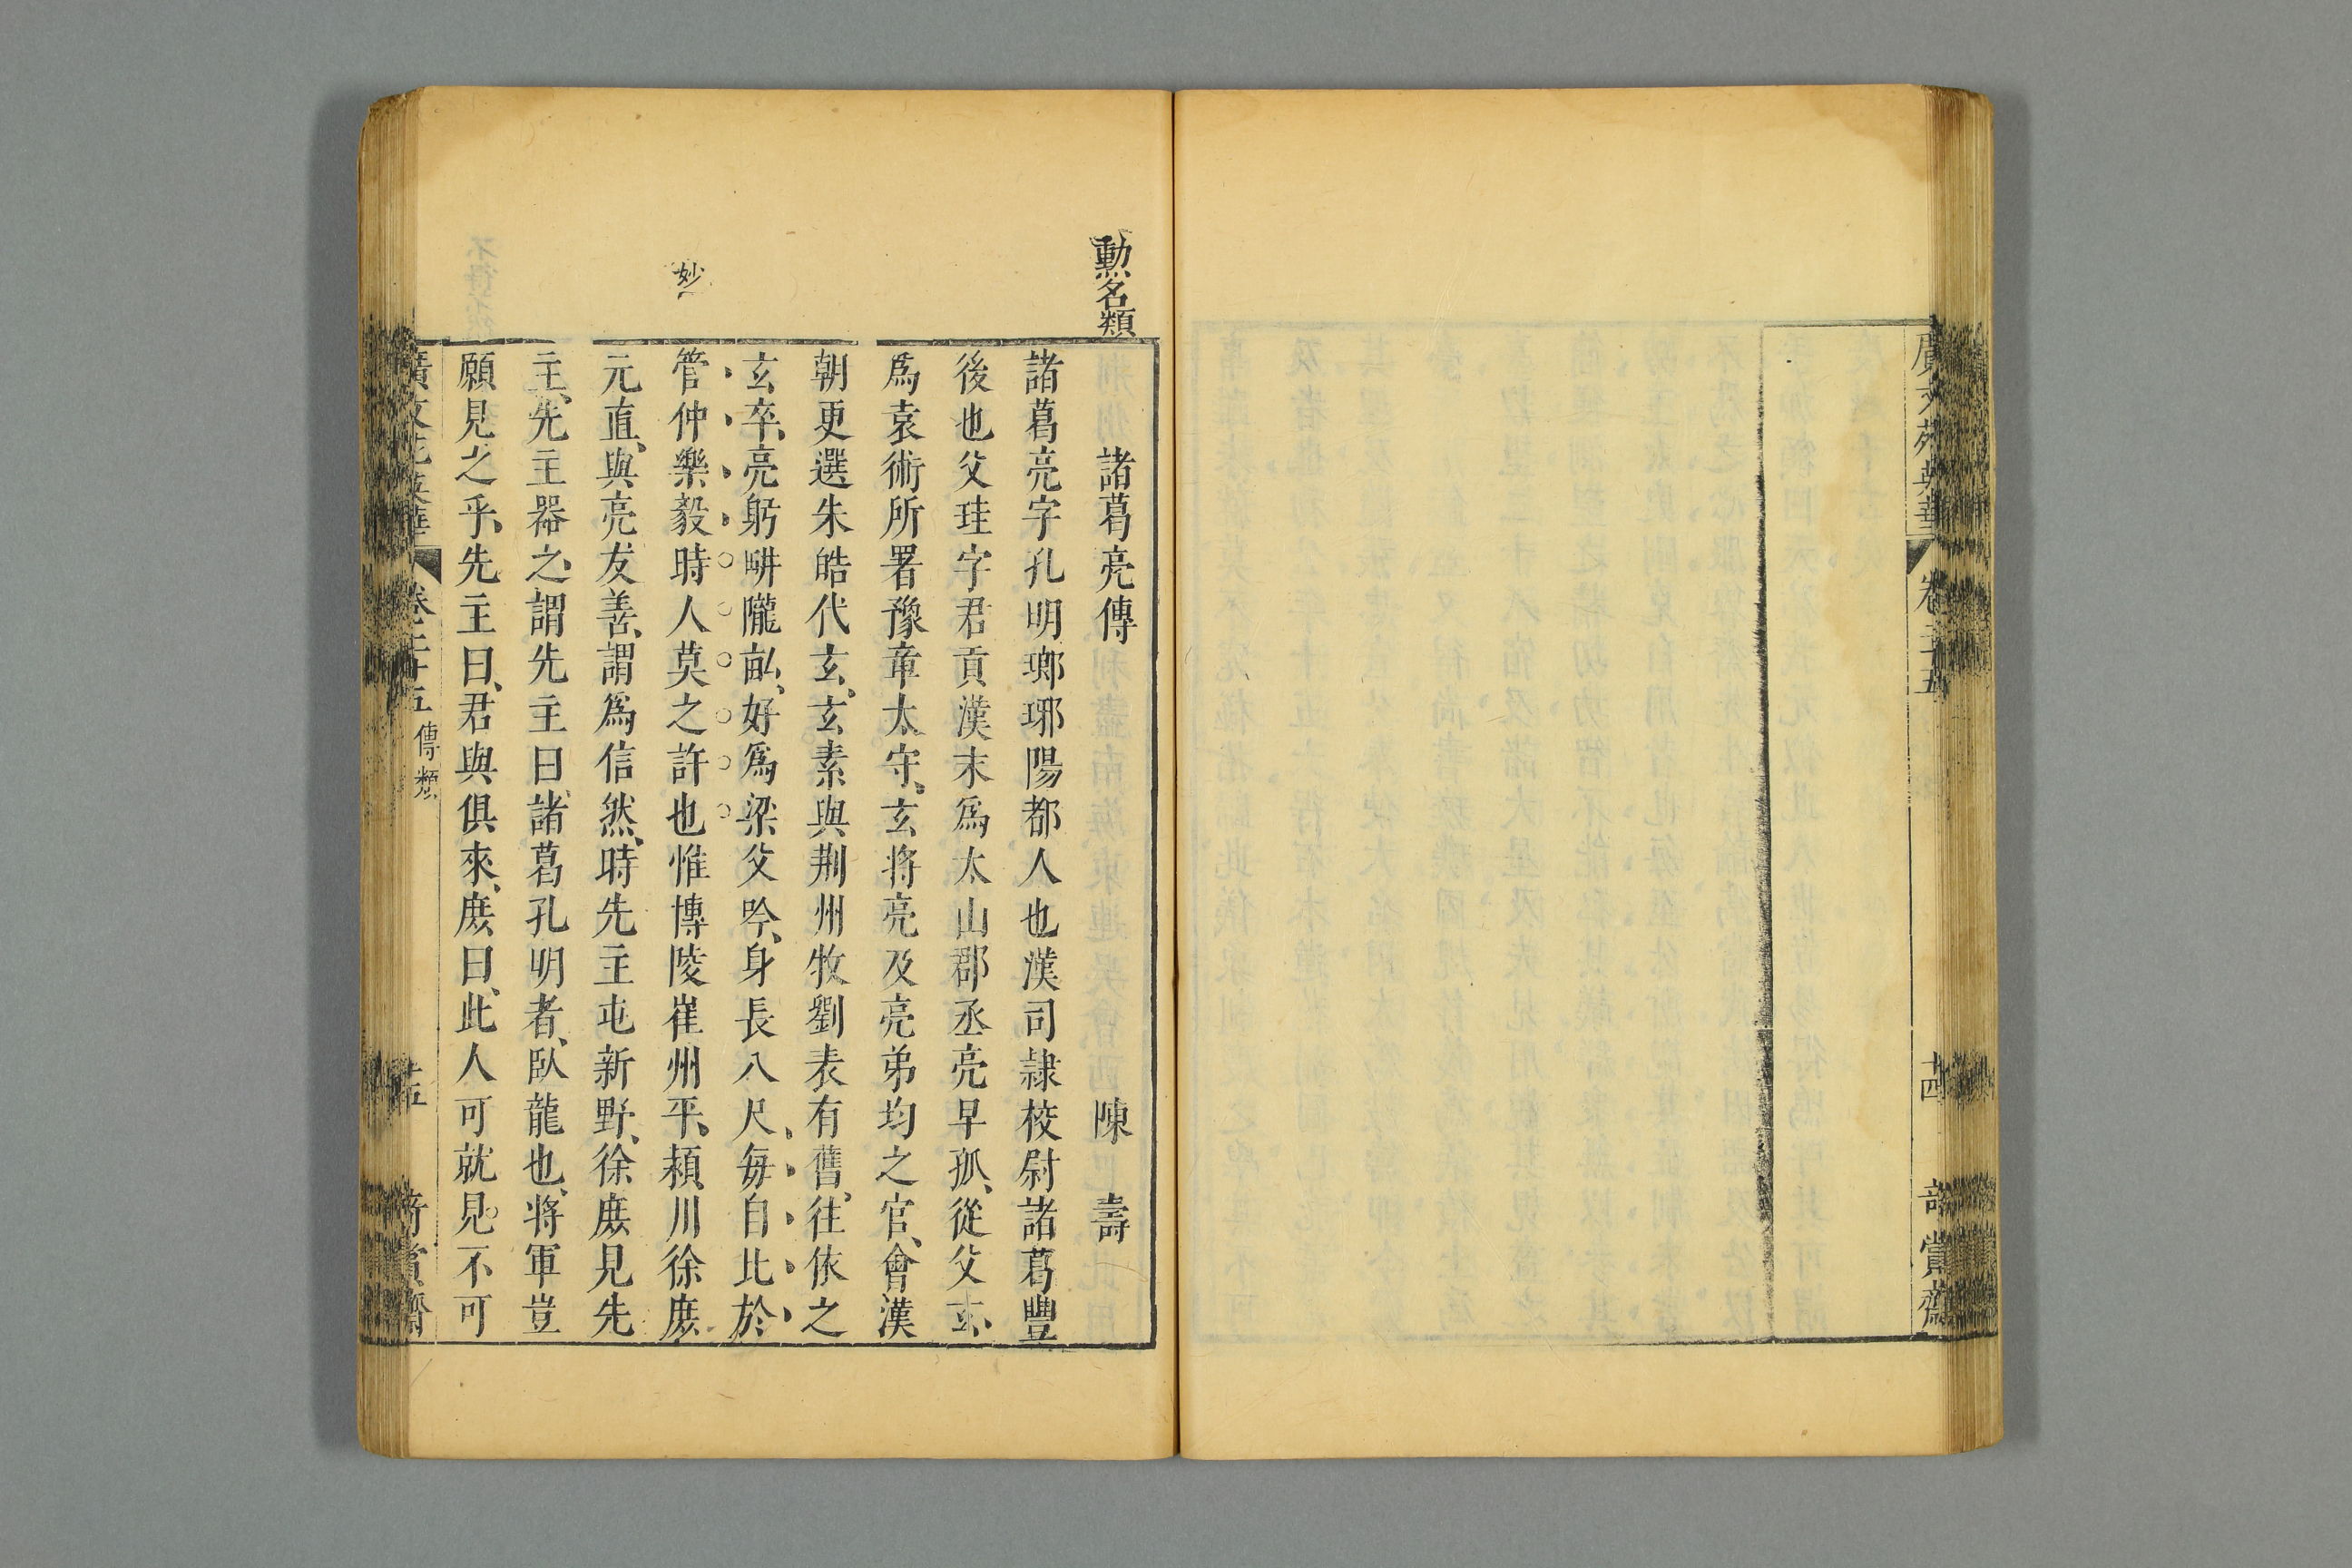 廣文苑英華 卷二十五
十四
賞齋
勳名類
諸葛亮傳 陳壽
諸葛亮字孔明瑯琊陽都人也漢司隷校尉諸葛豐
後也父珪字君貢漢末爲太山郡丞亮早孤、從父玄、
爲袁術所署豫章太守、玄將亮及亮弟均之官、會漢
朝更選朱皓代玄、玄素與荆州牧劉表有舊、往依之
玄卒、亮躬畊隴畝、好爲梁父吟、身長八尺、每自比於
妙
管仲樂毅時人莫之許也惟博陵崔州平、頴川徐庶
元直、與亮友善、謂爲信然、時先主屯新野、徐庶見先
主、先主器之、謂先主曰、諸葛孔明者、臥龍也、將軍豈
願見之乎、先主曰、君與俱來、庶曰、此人可就見、不可
廣文苑英華 卷二十五 傳類
十五
賞齋